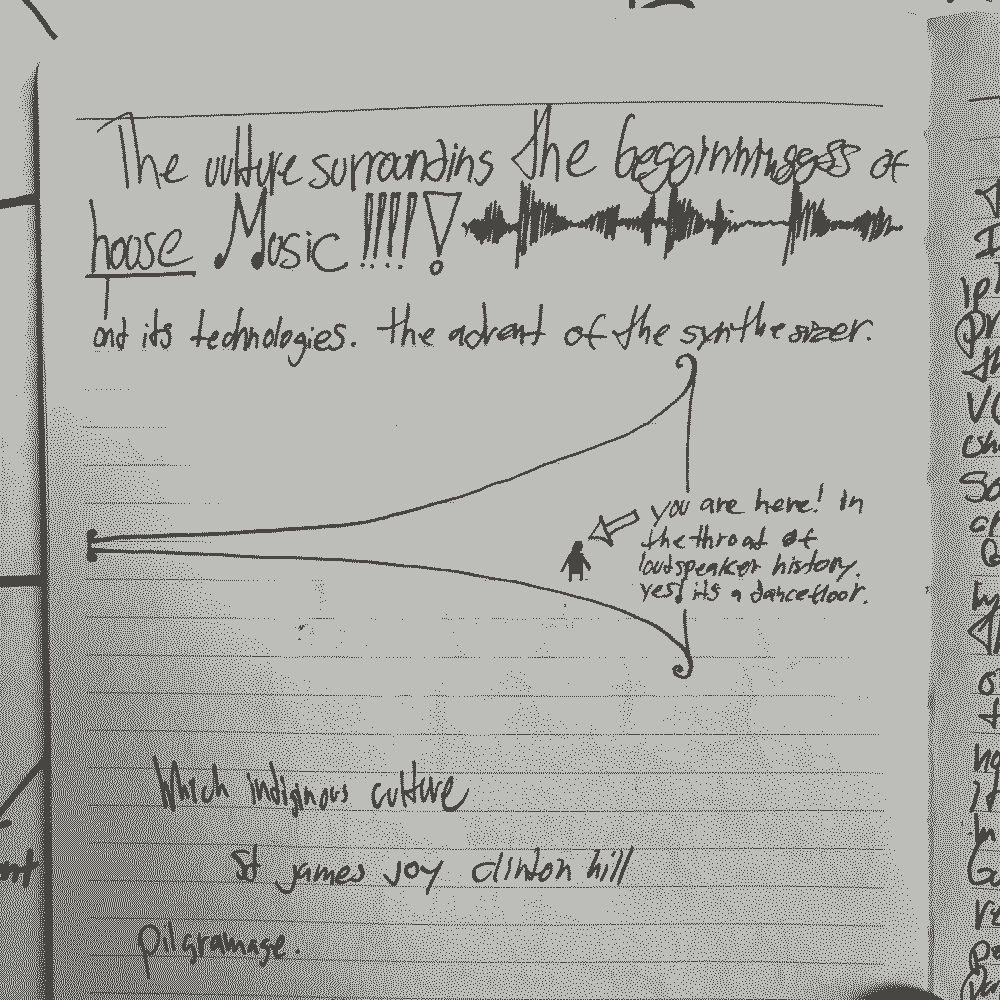 The culture surrounding the beginnings of
house Music !!!!!
and its technologies. the advent of the synthesizer.
you are here! in
the throat of
loudspeaker history.
yes! its a dancefloor.
Which indiginous culture
St james joy clinton hill
pilgramage.